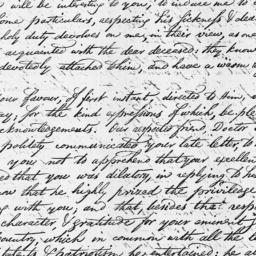 will be interesting to you; to induce me to
some particulars, respecting his sickness & dea
holy duty devolves on me, in their view, as one
acquainted with the dear deceased; they know
devotedly attached to him; and have a warm
our favour, of first instant, directed to him,
for the kind expressions of which, be ple
cknowledgements. Our respected friend, Doctor
politely communicated your late letter, to
you not to apprehend that your excellen
ed that you was dilatory, in replying to h
ow that he highly prized the priviledge
g with you, and that, besides that resp
character, & gratitude for your eminent
ountry, which in common with all the
& patriotism he entertained; he a